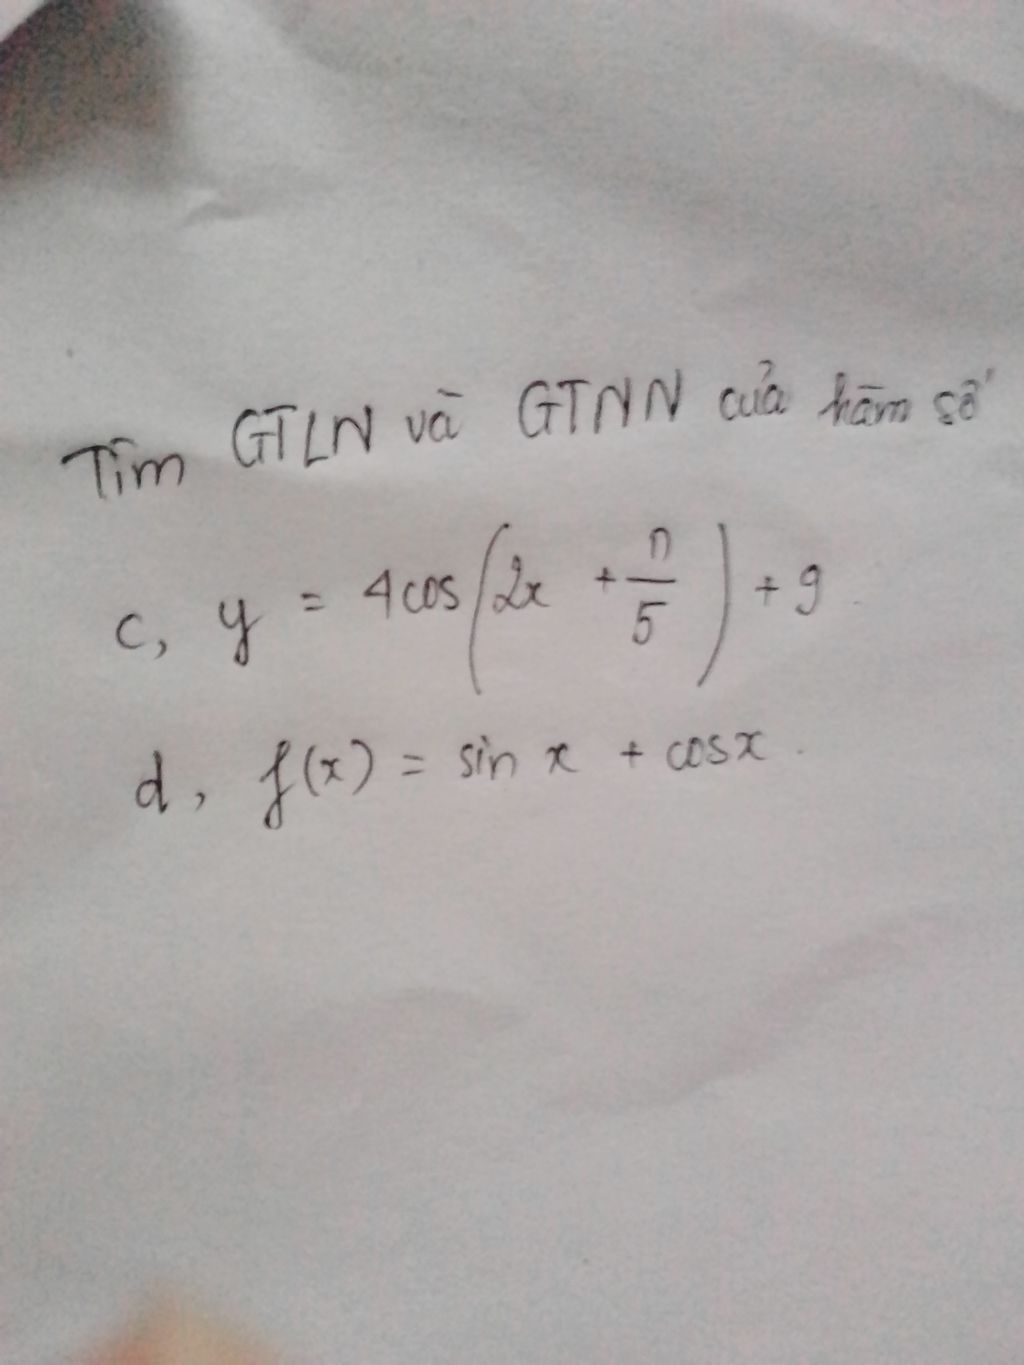 Tìm GTLN và GTNN của hàm số
c, y = 4cos(2x + π/5) + 9
d, f(x) = sin x + cosx.